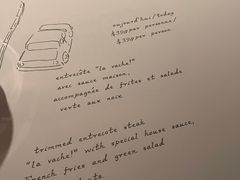 aujourd'hui/today
$39 per personne/
$39 per person
entrecôte "la vache!"
avec sauce maison,
accompagnée de frites et salade
verte aux noix
trimmed entrecote steak
"la vache!" with special house sauce,
French fries and green salad